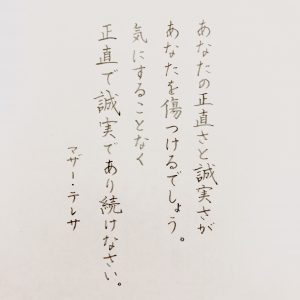 あなたの正直さと誠実さが
あなたを傷つけるでしょう。
気にすることなく
正直で誠実であり続けなさい。
マザー・テレサ